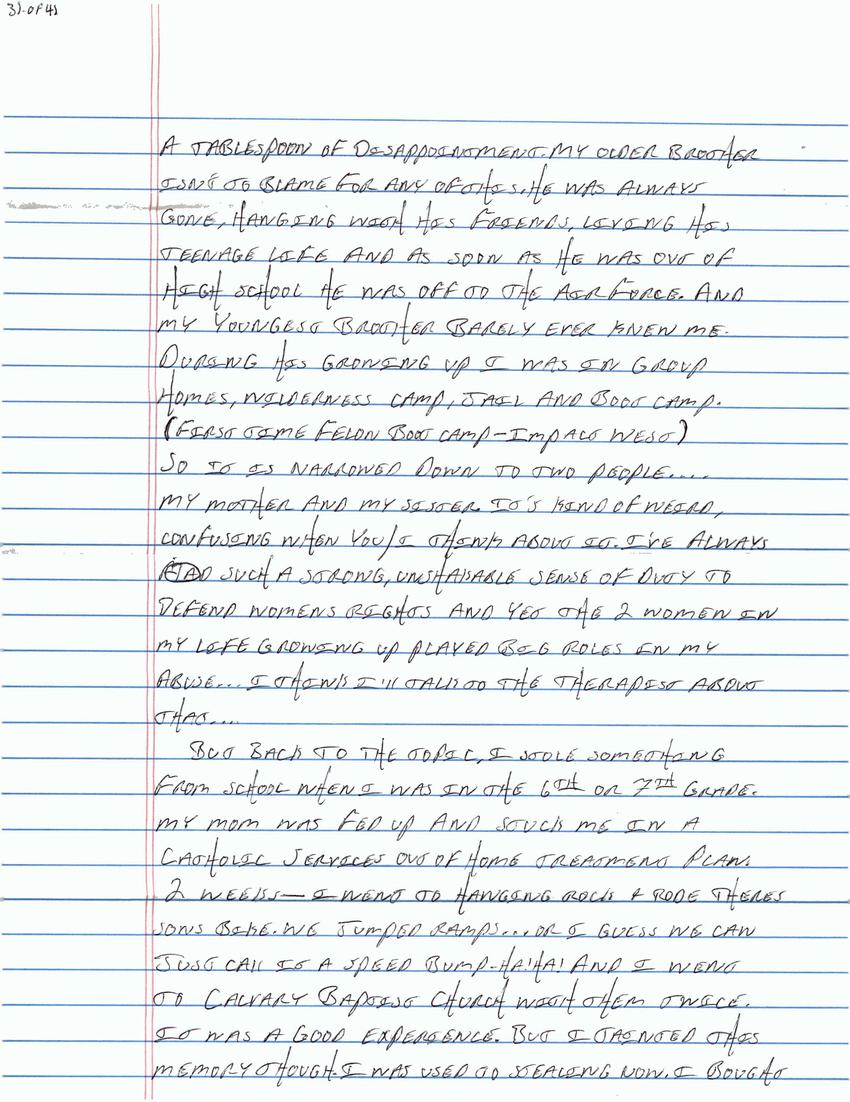 3).OF 4)
A TABLESPOON OF DISAPPOINTMENT. MY OLDER BROTHER
ISN'T TO BLAME FOR ANY OF THIS. HE WAS ALWAYS
GONE, HANGING WITH HIS FRIENDS, LIVING HIS
TEENAGE LIFE AND AS SOON AS HE WAS OUT OF
HIGH SCHOOL HE WAS OFF TO THE AIR FORCE. AND
MY YOUNGEST BROTHER BARELY EVER KNEW ME.
DURING HIS GROWING UP I WAS IN GROUP
HOMES, WILDERNESS CAMP, JAIL AND BOOT CAMP.
(FIRST TIME FELON BOOT CAMP-IMPACT WEST)
SO IT IS NARROWED DOWN TO TWO PEOPLE....
MY MOTHER AND MY SISTER. IT'S KIND OF WEIRD,
CONFUSING WHEN YOU/I THINK ABOUT IT. I'VE ALWAYS
HAD SUCH A STRONG, UNSHAKABLE SENSE OF DUTY TO
DEFEND WOMENS RIGHTS AND YET THE 2 WOMEN IN
MY LIFE GROWING UP PLAYED BIG ROLES IN MY
ABUSE... I THINK I'll TALK TO THE THERAPIST ABOUT
THAT....
BUT BACK TO THE TOPIC, I STOLE SOMETHING
FROM SCHOOL WHEN I WAS IN THE 6TH OR 7TH GRADE.
MY MOM WAS FED UP AND STUCK ME IN A
CATHOLIC SERVICES OUT OF HOME TREATMENT PLAN.
2 WEEKS— I WENT TO HANGING ROCK & RODE THERES
SONS BIKE. WE JUMPED RAMPS... OR I GUESS WE CAN
JUST CAll IT A SPEED BUMP-HA!HA! AND I WENT
TO CALVARY BAPTIST CHURCH WITH THEM TWICE.
IT WAS A GOOD EXPERIENCE. BUT I TAINTED THIS
MEMORY THOUGH. I WAS USED TO STEALING NOW. I BOUGHT